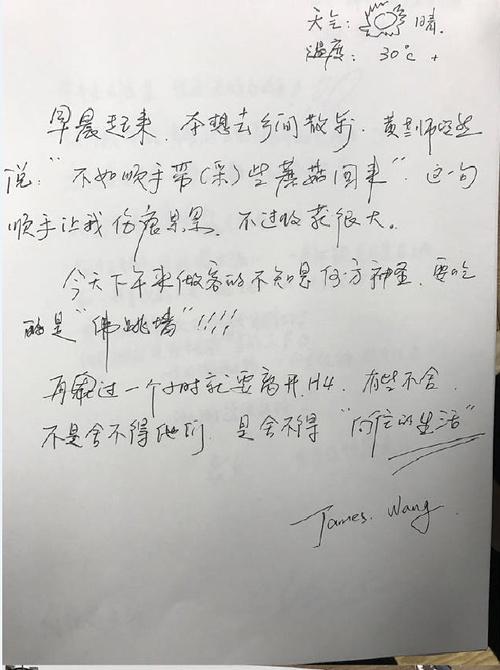 天气: 晴.
温度: 30°c +
早晨起来, 本想去乡间散步, 黄老师突然
说: "不如顺手带(采)些蘑菇回来". 这一句
顺手让我伤痕累累, 不过收获很大。
今天下午来做客的不知是何方神圣, 要吃
的是"佛跳墙"!!!!
再过一个小时就要离开H4, 有些不舍,
不是舍不得他们, 是舍不得 "向往的生活"
James. Wang.